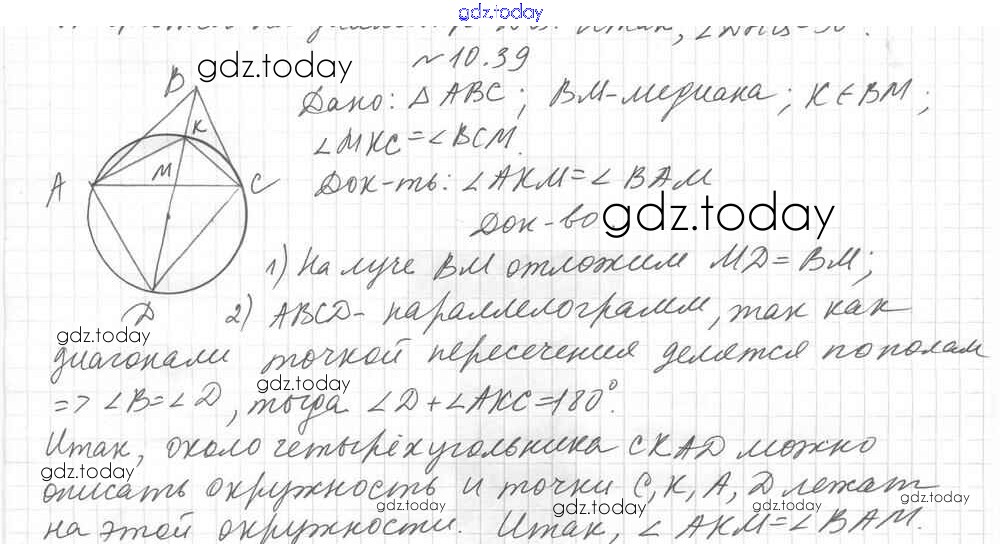 gdz.today
Итак,
№10.39
gdz.today
B
Дано: △ABC; BM-медиана; K∈BM;
K
∠MKC=∠BCM.
M
A
C
Док-ть: ∠AKM=∠BAM
Док-во
gdz.today
1) На луче BM отложим MD=BM;
D
2) ABCD-параллелограмм, так как
gdz.today
диагонали точкой пересечения делятся пополам
gdz.today
=> ∠B=∠D, тогда ∠D+∠AKC=180°.
Итак, около четырёхугольника CKAD можно
gdz.today
описать окружность и точки C, K, A, D лежат
gdz.today
gdz.today
gdz.today
на этой окружности. Итак, ∠AKM=∠BAM.
gdz.today